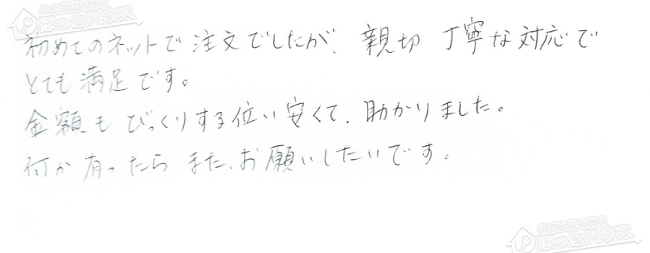 初めてのネットで注文でしたが、親切 丁寧な対応で
とても満足です。
金額も びっくりする位い安くて、助かりました。
何か有ったら また、お願いしたいです。